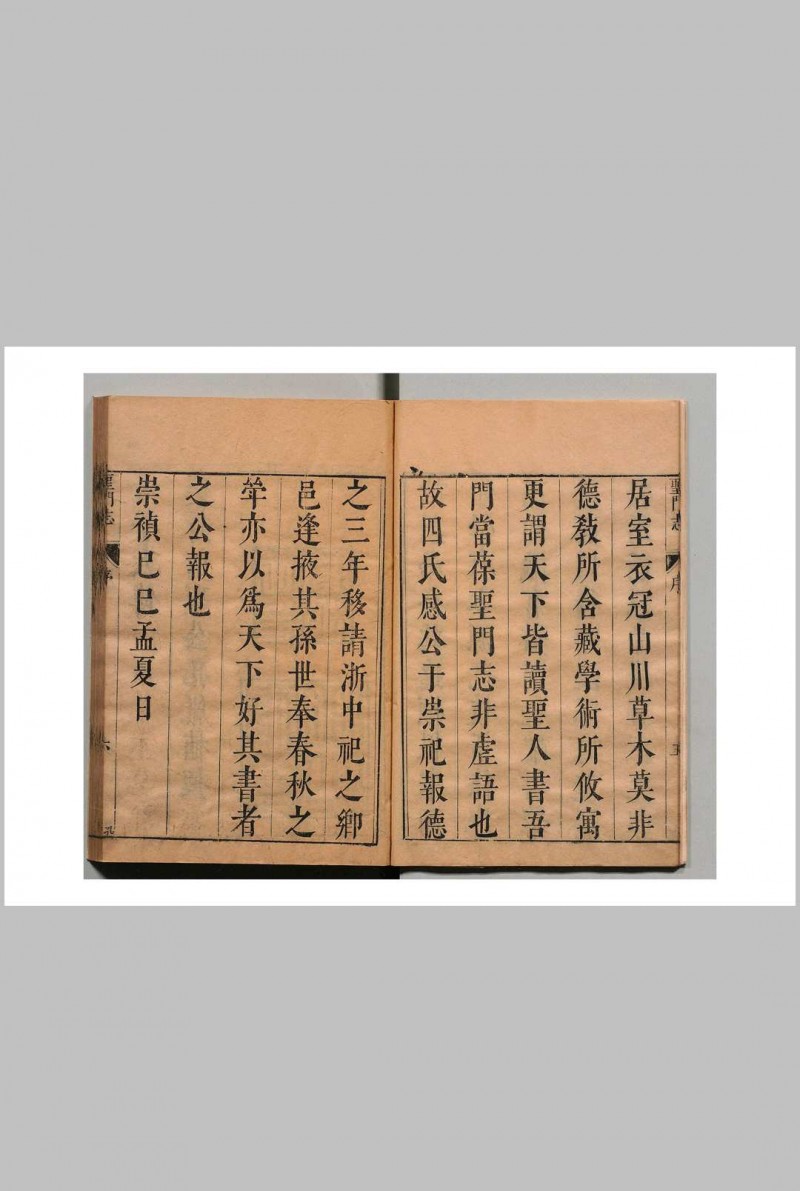 聖門志
序
五
居室衣冠山川草木莫非
德敎所含藏學術所攸寓
更謂天下皆讀聖人書吾
門當葆聖門志非虗語也
故四氏感公于崇祀報德
之三年移請浙中祀之鄉
邑逢掖其孫世奉春秋之
竿亦以爲天下好其書者
之公報也
崇禎巳巳孟夏日
聖門志
序
六